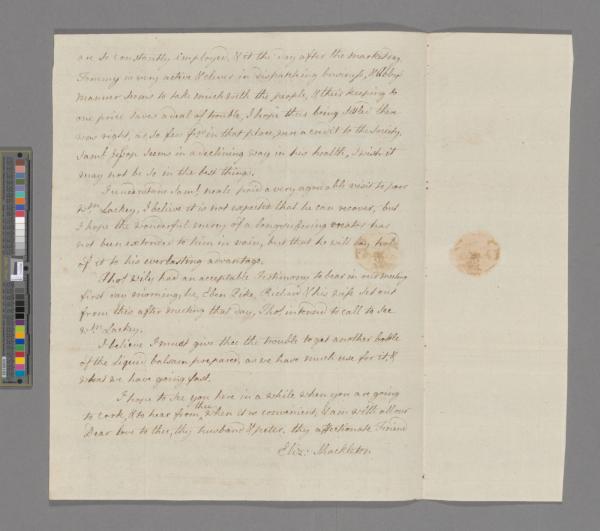 are so constantly employed, & it the day after the market day,
Tommy is very active & clever in dispatching business, & Abby's
manner seems to take much with the people, & their keeping to
one price saves a deal of trouble, I hope thus being settled then
now right, as so few fr.ds in that place, was a credit to the Society,
Sam.l seems in a declining way in his health, I wish it
may not be so in the best things.
I understand Sam.l Neale paid a very agreeable visit to poor
W.m Lackey, I believe it is not expected that he can recover, but
I hope the wonderful mercy of a longsuffering creator has
not been extended to him in vain, but that he will lay hold
of it to his everlasting advantage.
Tho.s Wily had an acceptable Testimony to bear in our meeting
first day morning, he, Eben Pike, Richard & his wife set out
from this after meeting that day, Tho.s intended to call to see
W.m Lackey.
I believe I must give thee the trouble to get another bottle
of the Liquid balsam prepared, as we have much use for it, &
what we have going fast.
I hope to see you here in a while when you are going
to Cork, & to hear from thee when it is convenient, I am with all our
Dear love to thee, thy husband & sister, thy affectionate Friend
Eliz: Shackleton